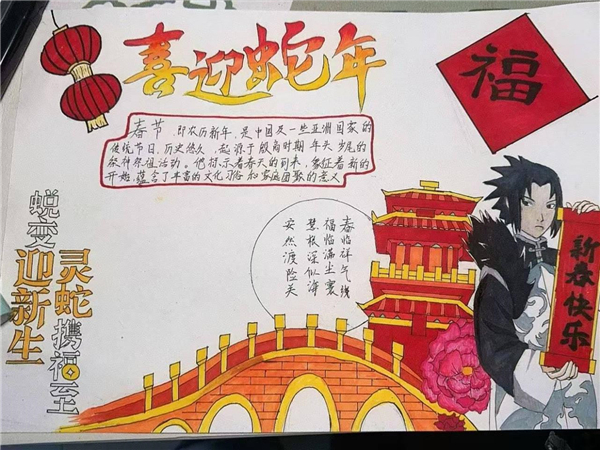 喜迎蛇年
福
春节 即农历新年,是中国及一些亚洲国家的
传统节日,历史悠久,起源于殷商时期年头岁尾的
祭神祭祖活动。他示着春天的到来,象征着新的
开始,蕴含了丰富的文化习俗和家庭团聚的意义
春临祥气绕
福临满尘寰
慧根深似海
安然渡险关
蜕变迎新生
灵蛇携福至
新春快乐